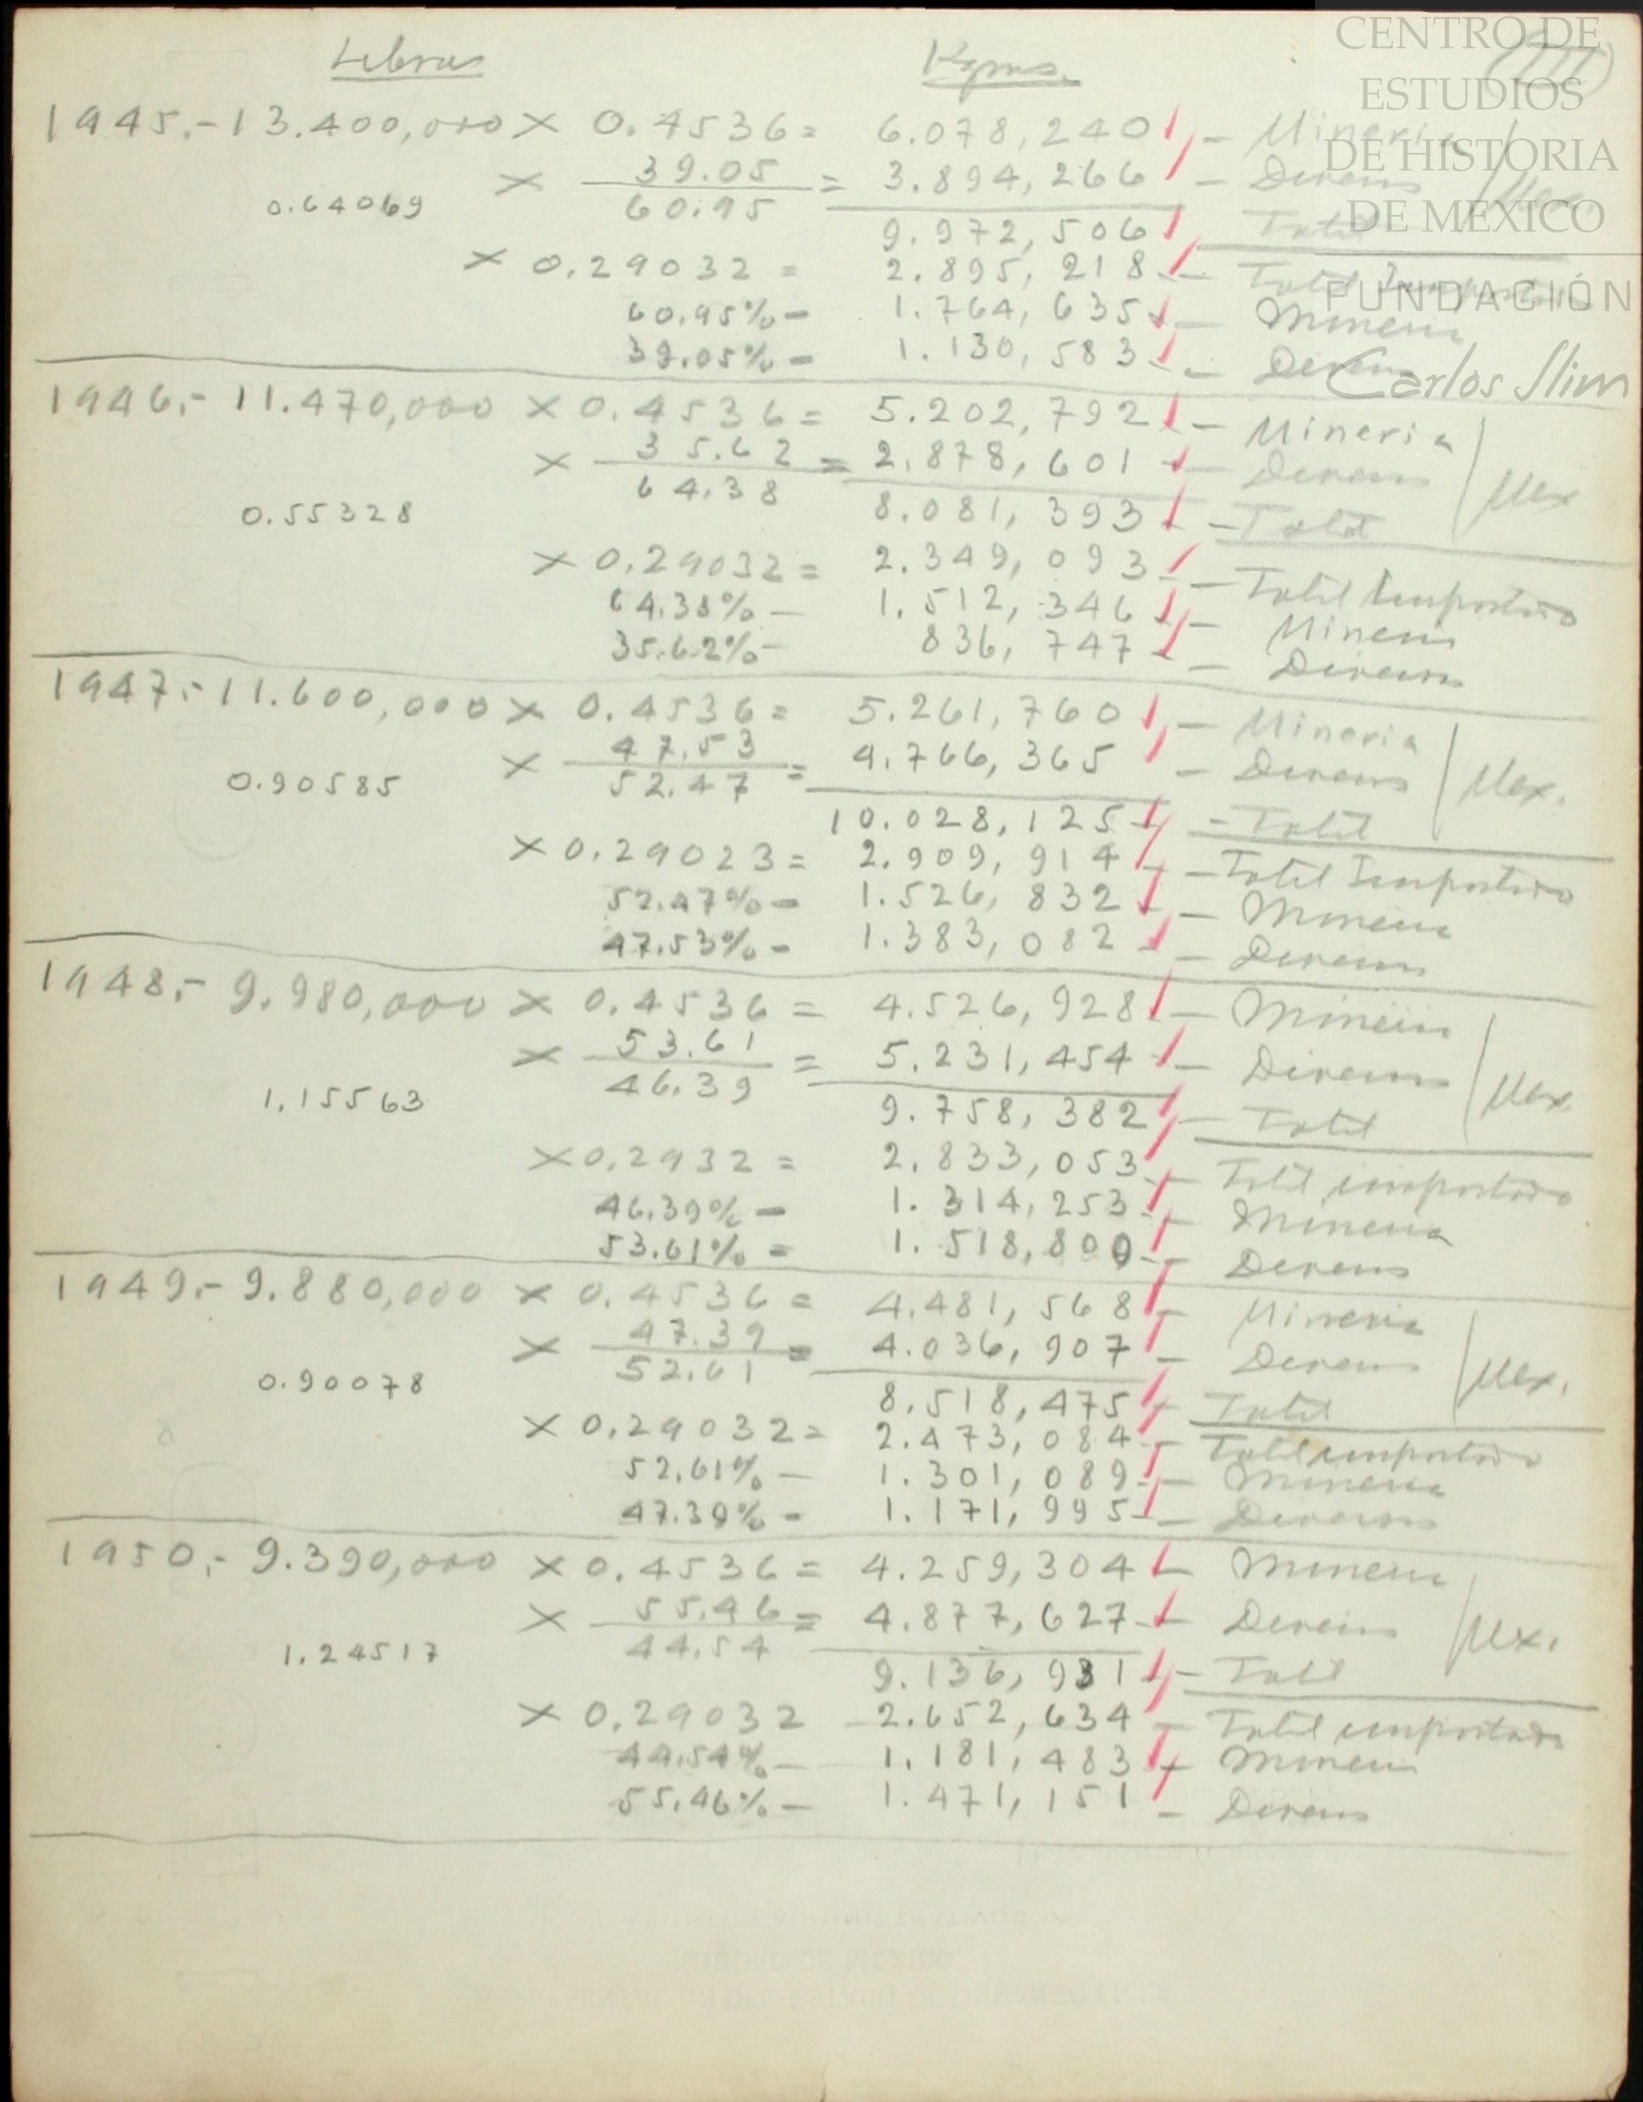 Libras Kgms. (III)
CENTRO DE
ESTUDIOS
DE HISTORIA
DE MEXICO
FUNDACIÓN
Carlos Slim
1945.- 13.400,000 × 0.4536 = 6.078,240 - Mineria
× 39.05 / 60.95 = 3.894,266 - Diversos Mex.
0.64069
9.972,506 Total
× 0.29032 = 2.895,218 - Total Importado
60.95% - 1.764,635 - Mineria
39.05% - 1.130,583 - Diversos
1946.- 11.470,000 × 0.4536 = 5.202,792 - Mineria
× 35.62 / 64.38 = 2.878,601 - Diversos Mex
0.55328
8.081,393 - Total
× 0.29032 = 2.349,093 - Total Importado
64.38% - 1.512,346 - Mineria
35.62% - 836,747 - Diversos
1947.- 11.600,000 × 0.4536 = 5.261,760 - Mineria
× 47.53 / 52.47 = 4.766,365 - Diversos Mex.
0.90585
10.028,125 - Total
× 0.29023 = 2.909,914 - Total Importado
52.47% - 1.526,832 - Mineria
47.53% - 1.383,082 - Diversos
1948.- 9.980,000 × 0.4536 = 4.526,928 - Mineria
× 53.61 / 46.39 = 5.231,454 - Diversos Mex
1.15563
9.758,382 - Total
× 0.2932 = 2.833,053 - Total importado
46.39% - 1.314,253 - Mineria
53.61% = 1.518,800 - Diversos
1949.- 9.880,000 × 0.4536 = 4.481,568 - Mineria
× 47.39 / 52.61 = 4.036,907 - Diversos Mex.
0.90078
8.518,475 - Total
× 0.29032 = 2.473,084 - Total importado
52.61% - 1.301,089 - Mineria
47.39% - 1.171,995 - Diversos
1950.- 9.390,000 × 0.4536 = 4.259,304 - Mineria
× 55.46 / 44.54 = 4.877,627 - Diversos Mex.
1.24517
9.136,931 - Total
× 0.29032 2.652,634 - Total importado
44.54% - 1.181,483 - Mineria
55.46% - 1.471,151 - Diversos